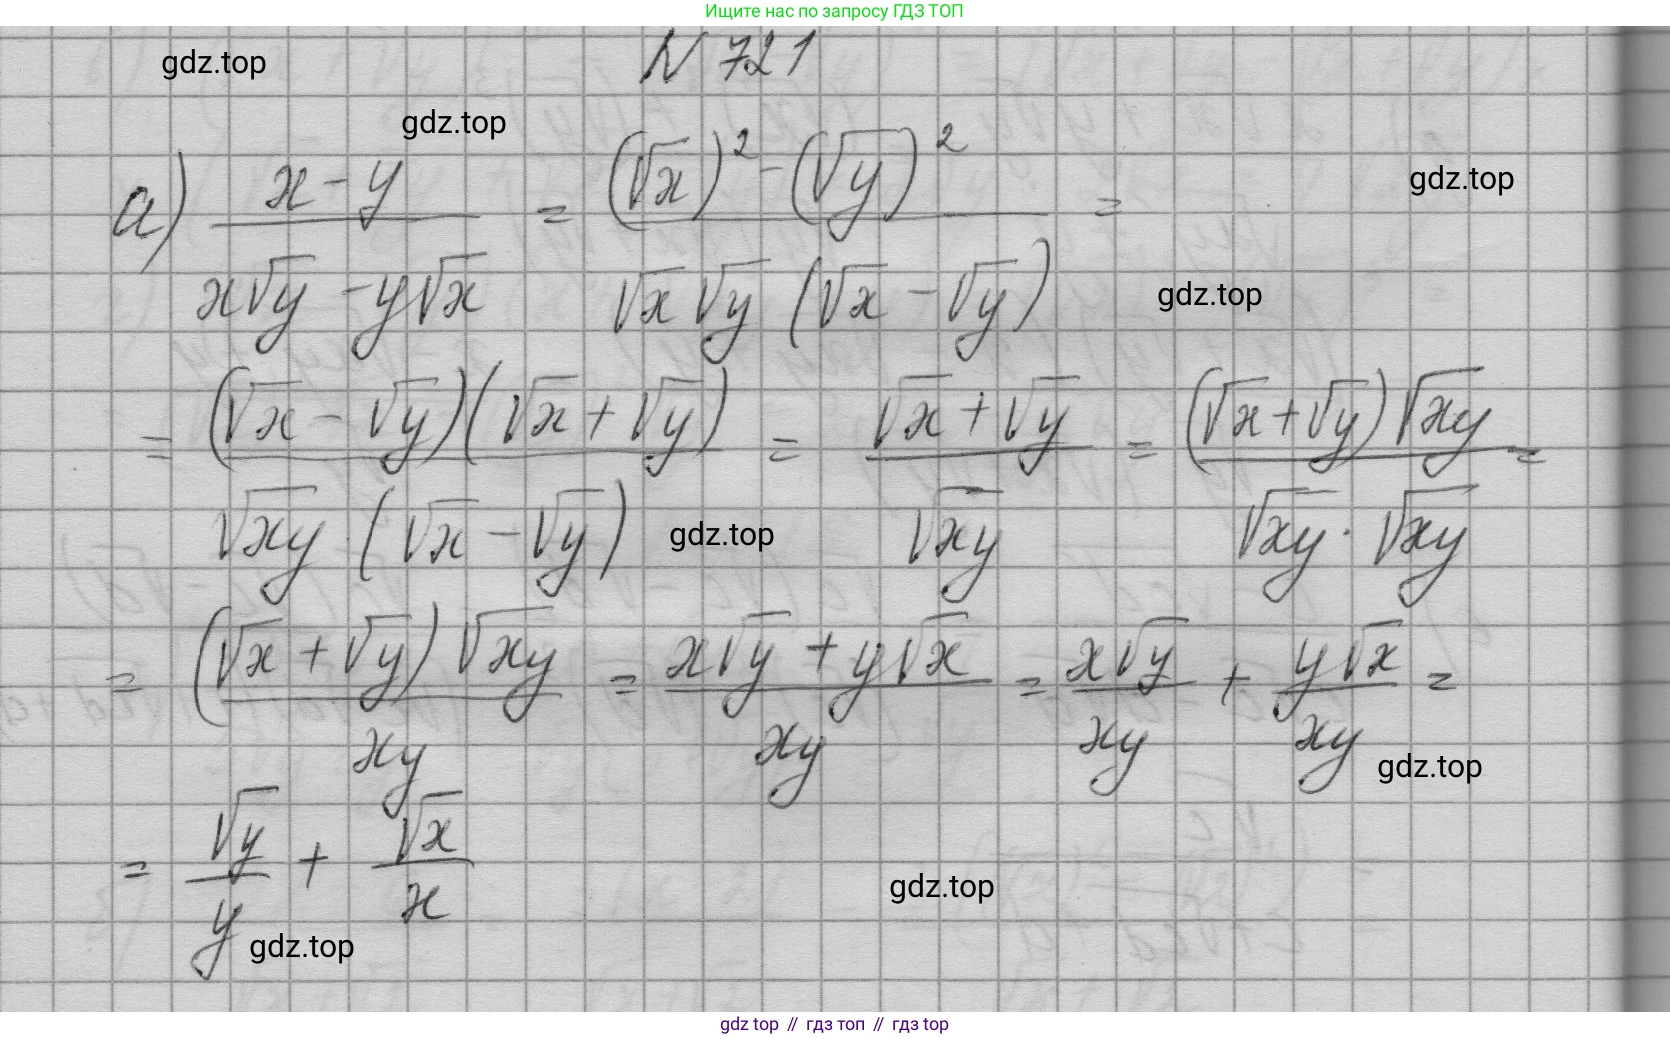 Ищите нас по запросу ГДЗ ТОП
N 721
gdz.top
gdz.top
gdz.top
а) (x-y)/(x√y - y√x) = ((√x)² - (√y)²)/(√x √y (√x - √y)) =
gdz.top
= ((√x - √y)(√x + √y))/(√xy · (√x - √y)) = (√x + √y)/√xy = ((√x + √y)√xy)/(√xy · √xy) =
gdz.top
= ((√x + √y)√xy)/xy = (x√y + y√x)/xy = x√y/xy + y√x/xy =
gdz.top
= √y/y + √x/x
gdz.top
gdz.top
gdz top // гдз топ // гдз top